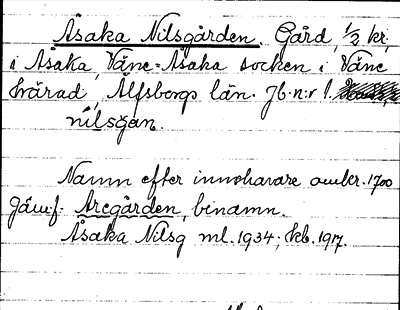 Åsaka Nilsgården. Gård, 1/2 kr.
i Åsaka, Väne-Åsaka socken i Väne
härad, Älfsborgs län. Jb.n:r 1.
nilsgan.
Namn efter innehavare omkr. 1700
Jämf. Aregården, binamn.
Åsaka Nilsg ml. 1934; Ekb. 1917.